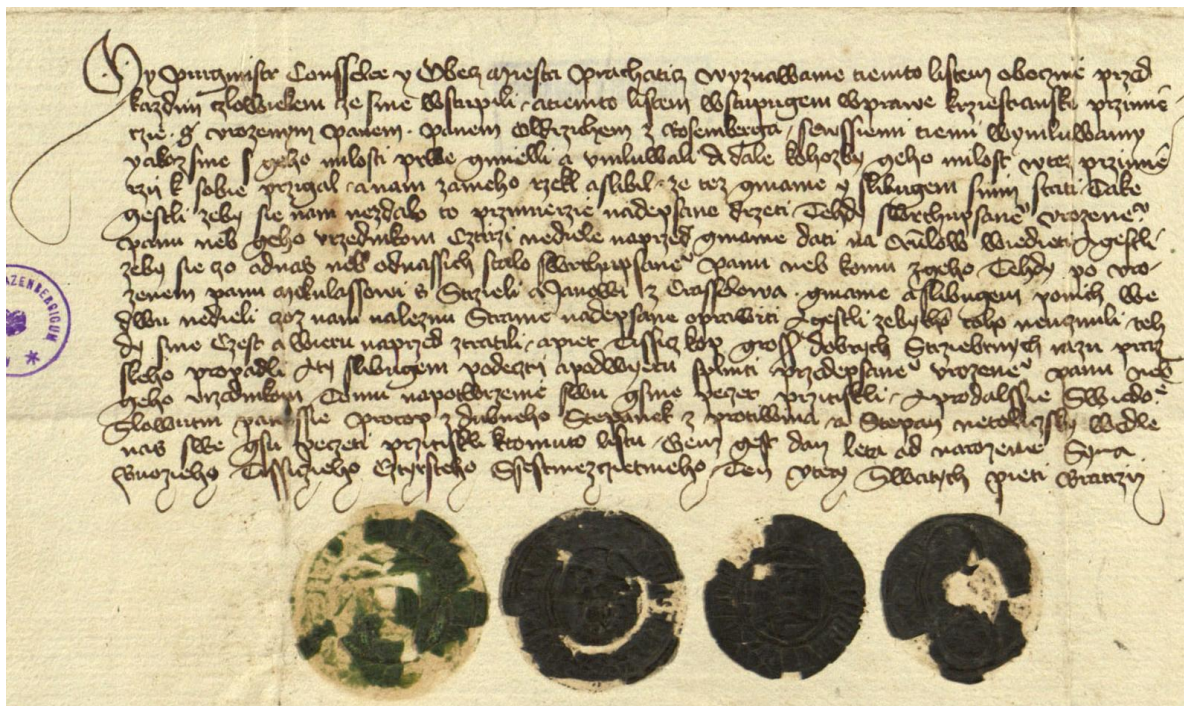 My Purgmistr Consselee y Obecz Miesta Prachaticz wyznawame tiemto listem obecznie przed
kazdym czlowiekem ze sme wstupili a tiemto listem wstupugem wprawe krziestianske przimie
rzie s urozenym panem panem Oldrzichem z Rosemberga sewssiemi tiemi wymluwamy
yakoz sme s geho milosti prwe gmielli a umluwali A dale kohozby geho milost w tez przimie
rzij k sobie przigal a nam zameho rzekl a slibil ze tez gmame y slibugem snim stati Take
gestli zeby sie nam nezdalo to przimierzie nadepsane drzeti Tehdy swrchupsane° urozene°
panu neb geho urzednikom Cztirzi nediele naprzed gmame dati na Crumlow wiedieti A gestli
zeby sie czo odnas neb odnassich stalo swrchupsane° panu neb komu zgeho Tehdy po uro
zenem panu Mikulassowi Strzieli a Janowi z Crasselowa gmame a slibugem ponich we
dwu nedieli czoz nam naleznu Stranie nadepsane oprawiti A gestli zebychom toho neucznili teh
dy sme Czest a Wieru naprzed ztratili a piet Tissicz kop gross dobrych Strziebrnych razu praz
skeho propadli A ty slibugem podczti a podwieru splniti przedepsane° urozene° panu neb
geho urzednikom Tomu napotwrzenie swu gsme peczet przitiskli A prodalssie Swiedo°
Slowutni panossie Protop z dubneho Stepanek z protiwina a Stepan netoliczsky wedle
nas swe gsu peczeti przitiskli ktomuto listu Genz gest dan leta od narozenie Syna
Buozieho Tissiczieho Cztyrsteho Ssestmezczietmeho Ten utery Swatych pieti Bratrzij